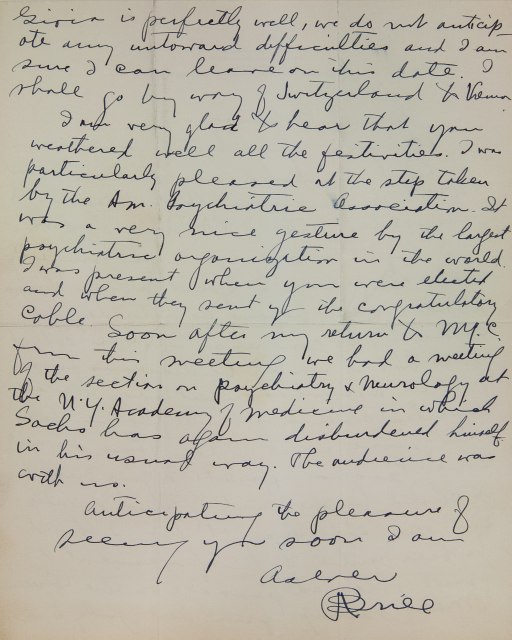 Gioia is perfectly well, we do not anticip-
ate any untoward difficulties and I am
sure I can leave on this date. I
shall go by way of Switzerland to Vienna.
I am very glad to hear that you
weathered well all the festivities. I was
particularly pleased at the step taken
by the Am. Psychiatric Association. It
was a very nice gesture by the largest
psychiatric organization in the world.
I was present when you were elected
and when they sent you the congratulatory
Cable. Soon after my return to N.Y.C.
from this meeting we had a meeting
of the section on psychiatry & neurology at
the N.Y. Academy of Medicine in which
Sachs has again disburdened himself
in his usual way. The audience was
with us.
Anticipating the pleasure of
seeing you soon I am
As ever
AABrill